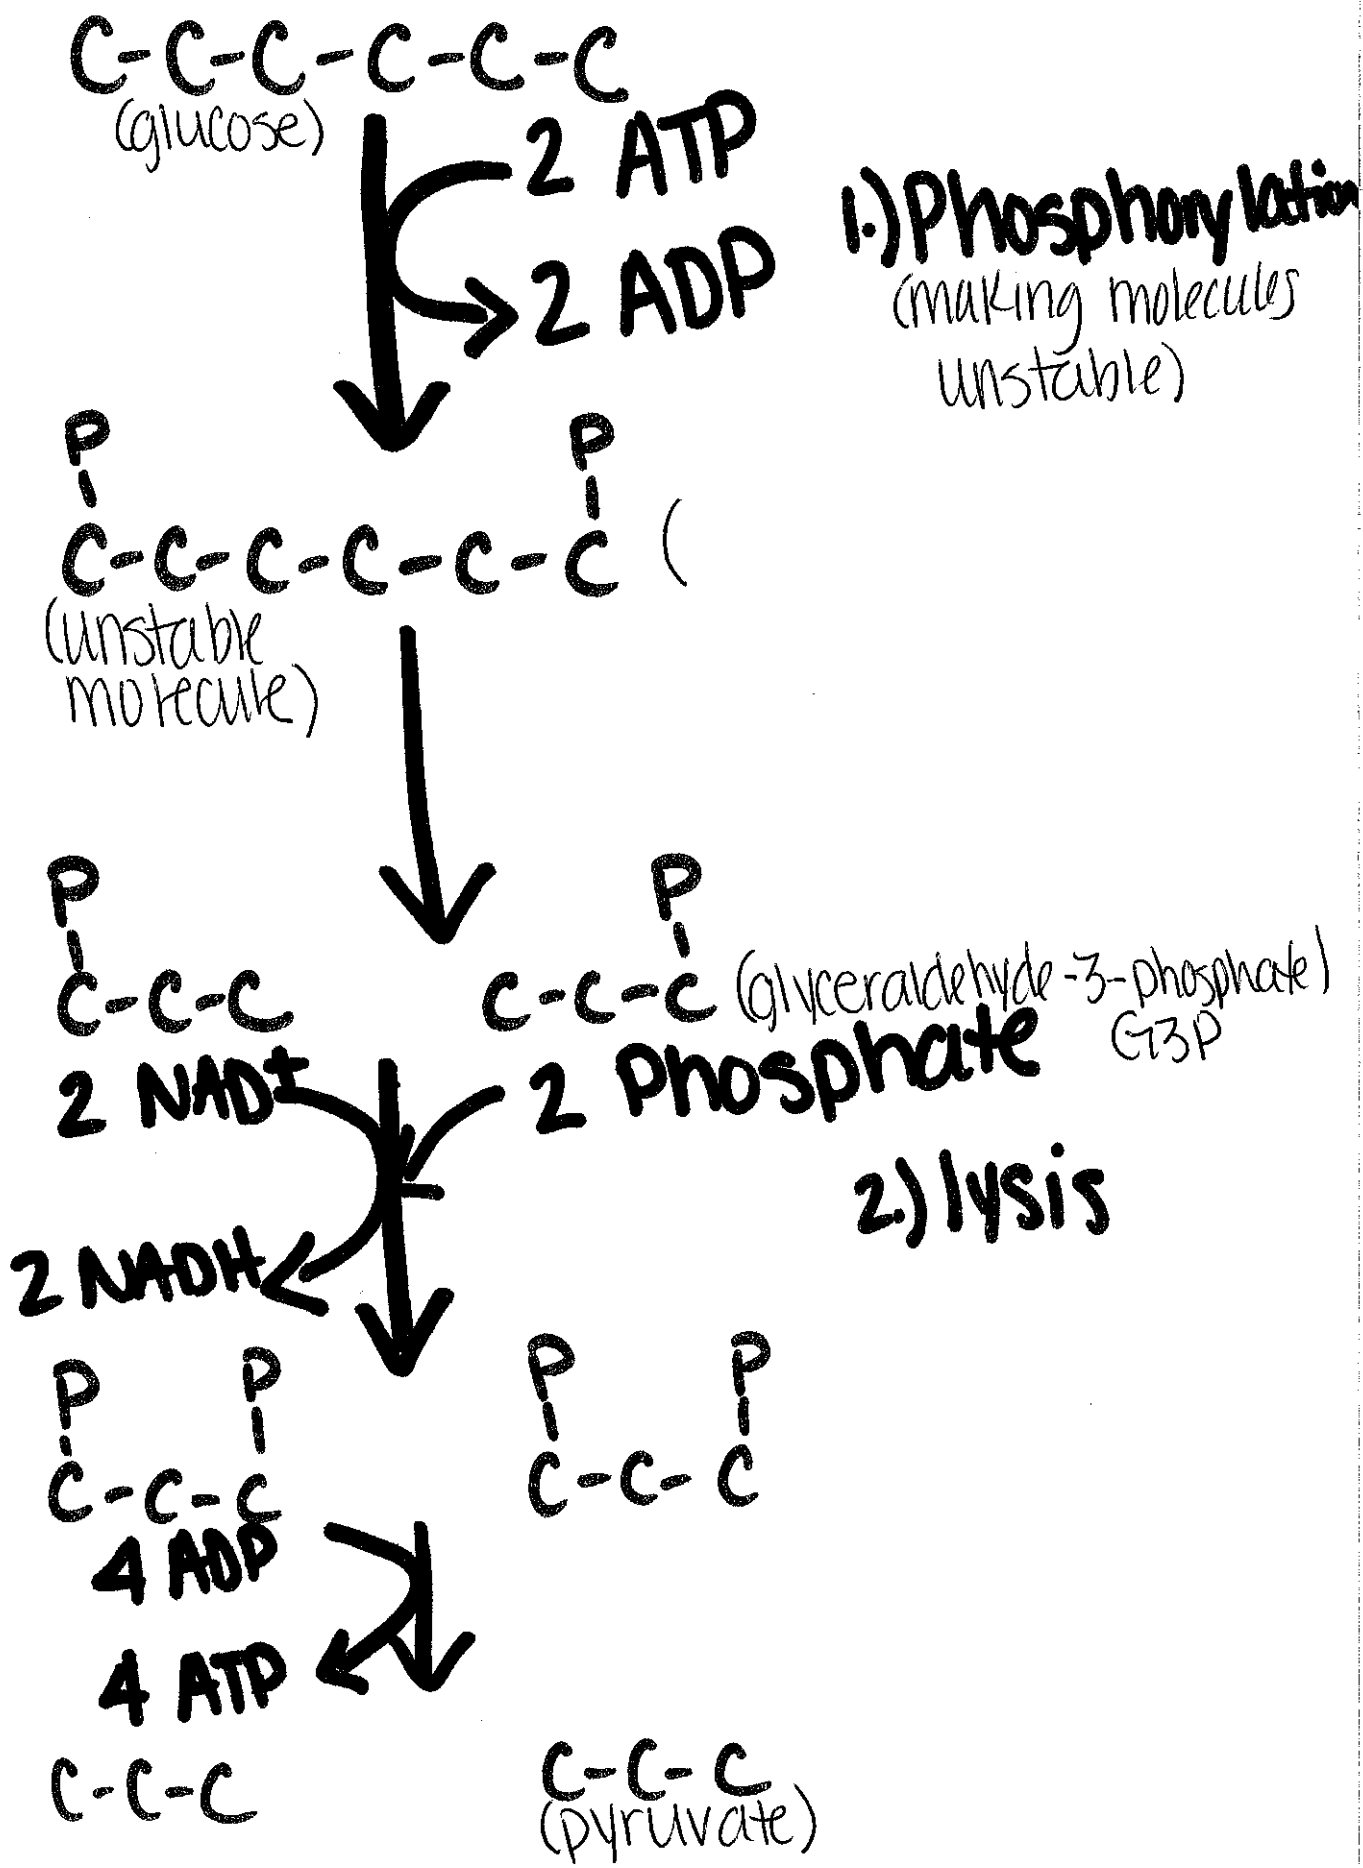 C-C-C-C-C-C
(glucose)
2 ATP
2 ADP
1.) Phosphorylation
(making molecules
unstable)
P P
C-C-C-C-C-C (
(unstable
molecule)
P P
C-C-C C-C-C (glyceraldehyde-3-phosphate)
G3P
2 NAD+ 2 Phosphate
2.) lysis
2 NADH
P P P P
C-C-C C-C-C
4 ADP
4 ATP
C-C-C C-C-C
(pyruvate)